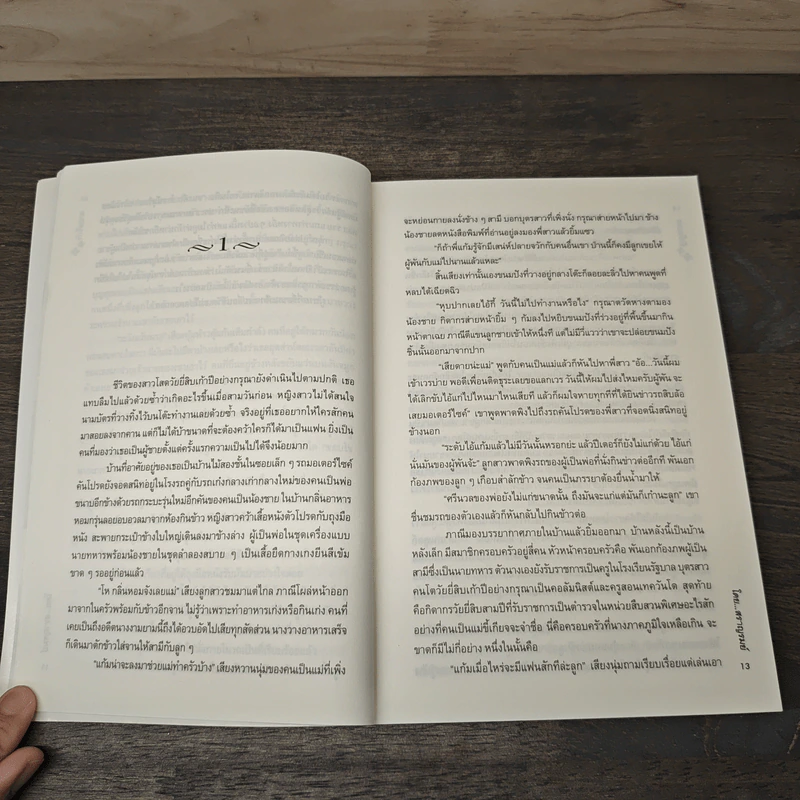 ~1~
ชีวิตของสาวโสดวัยยี่สิบเก้าปีอย่างกรุณายังดำเนินไปตามปกติ เธอ
แทบลืมไปแล้วด้วยซ้ำว่าเกิดอะไรขึ้นเมื่อสามวันก่อน หญิงสาวไม่ได้สนใจ
นามบัตรที่วางทิ้งไว้บนโต๊ะทำงานเลยด้วยซ้ำ จริงอยู่ที่เธออยากให้ใครสักคน
มาสอยลงจากคาน แต่ก็ไม่ได้บ้าขนาดที่จะต้องคว้าใครก็ได้มาเป็นแฟน ยิ่งเป็น
คนที่มองว่าเธอเป็นผู้ชายตั้งแต่ครั้งแรกความเป็นไปได้จึงน้อยมาก
บ้านที่อาศัยอยู่ของเธอเป็นบ้านไม้สองชั้นในซอยเล็ก ๆ รถมอเตอร์ไซค์
คันโปรดยังจอดสนิทอยู่ในโรงรถคู่กับรถเก๋งกลางเก่ากลางใหม่ของคนเป็นพ่อ
ขนาบอีกข้างด้วยรถกระบะรุ่นใหม่อีกคันของคนเป็นน้องชาย ในบ้านกลิ่นอาหาร
หอมกรุ่นลอยอบอวลมาจากห้องกินข้าว หญิงสาวคว้าเสื้อหนังตัวโปรดกับถุงมือ
หนัง สะพายกระเป๋าข้างใบใหญ่เดินลงมาข้างล่าง ผู้เป็นพ่อในชุดเครื่องแบบ
นายทหารพร้อมน้องชายในชุดลำลองสบาย ๆ เป็นเสื้อยืดกางเกงยีนสีเข้ม
ขาด ๆ รออยู่ก่อนแล้ว
“โห กลิ่นหอมจังเลยแม่” ลูกสาวชมมาแต่ไกล ภาณีโผล่หน้าออก
มาจากในครัวพร้อมกับข้าวอีกจาน ไม่รู้ว่าเพราะทำอาหารเก่งหรือกินเก่ง คนที่
เคยเป็นถึงอดีตนางงามยามนี้ถึงได้อวบอัดไปเสียทุกสัดส่วน นางวางอาหารเสร็จ
ก็เดินมาตักข้าวใส่จานให้สามีกับลูก ๆ
“แก้มน่าจะลงมาช่วยแม่ทำครัวบ้าง” เสียงหวานนุ่มของคนเป็นแม่ที่เพิ่ง
จะหย่อนกายลงนั่งข้าง ๆ สามี บอกบุตรสาวที่เพิ่งนั่ง กรุณาส่ายหน้าไปมา ข้าง
น้องชายลดหนังสือพิมพ์ที่อ่านอยู่ลงมองพี่สาวแล้วยิ้มแซว
“ก็ถ้าพี่แก้มรู้จักมีเสน่ห์ปลายจวักกับคนอื่นเขา บ้านนี้ก็คงมีลูกเขยให้
ผู้พันกับแม่ไปนานแล้วแหละ”
สิ้นเสียงเท่านั้นเองขนมปังที่วางอยู่กลางโต๊ะก็ลอยละลิ่วไปหาคนพูดที่
หลบได้เฉียดฉิว
“หุบปากเลยไอ้กี้ วันนี้ไม่ไปทำงานหรือไง” กรุณาตวัดหางตามอง
น้องชาย กิดากรส่ายหน้ายิ้ม ๆ ก้มลงไปหยิบขนมปังที่ร่วงอยู่ที่พื้นขึ้นมากิน
หน้าตาเฉย ภาณีตีแขนลูกชายเข้าให้หนึ่งที แต่ไม่มีวี่แววว่าเขาจะปล่อยขนมปัง
ชิ้นนั้นออกมาจากปาก
“เสียดายน่ะแม่” พูดกับคนเป็นแม่แล้วก็หันไปหาพี่สาว “อ้อ...วันนี้ผม
เข้าเวรบ่าย พอดีเพื่อนติดธุระเลยขอแลกเวร วันนี้ให้ผมไปส่งไหมครับผู้พัน จะ
ได้เลิกขับไอ้แก่ไปไหนมาไหนเสียที แล้วก็ผมโจหายทุกทีที่ได้ยินข่าวรถสิบล้อ
เสยมอเตอร์ไซค์” เขาพูดพาดพิงไปถึงรถคันโปรดของพี่สาวที่จอดนิ่งสนิทอยู่
ข้างนอก
“ระดับไอ้แก้มแล้วไม่มีวันนั้นหรอกย่ะ แล้วปีเตอร์ก็ยังไม่แก่ด้วย ไอ้แก่
นั่นมันของผู้พันจ้ะ” ลูกสาวพาดพิงรถของผู้เป็นพ่อที่นั่งกินข่าวต่ออีกที พันเอก
ก้องภพมองลูก ๆ เกือบสำลักข้าว จนคนเป็นภรรยาต้องยื่นน้ำมาให้
“ศรีนวลของพ่อยังไม่แก่ขนาดนั้น ถึงมันจะแก่แต่มันก็เก๋านะลูก” เขา
ชื่นชมรถของตัวเองแล้วก็หันกลับไปกินข้าวต่อ
ภาณีมองบรรยากาศภายในบ้านแล้วยิ้มออกมา บ้านหลังนี้เป็นบ้าน
หลังเล็ก มีสมาชิกครอบครัวอยู่สี่คน หัวหน้าครอบครัวคือ พันเอกก้องภพผู้เป็น
สามีซึ่งเป็นนายทหาร ตัวนางเองยังรับราชการเป็นครูในโรงเรียนรัฐบาล บุตรสาว
คนโตวัยยี่สิบเก้าปีอย่างกรุณาเป็นคอลัมนิสต์และครูสอนเทควันโด สุดท้าย
คือกิดากรวัยยี่สิบสามปีที่รับราชการเป็นตำรวจในหน่วยสืบสวนพิเศษอะไรสัก
อย่างที่คนเป็นแม่ขี้เกียจจะจำชื่อ นี่คือครอบครัวที่นางภาคภูมิใจเหลือเกิน จะ
ขาดก็มีไม่กี่อย่าง หนึ่งในนั้นคือ
“แก้มเมื่อไหร่จะมีแฟนสักทีล่ะลูก” เสียงนุ่มถามเรียบเรื่อยแต่เล่นเอา
13